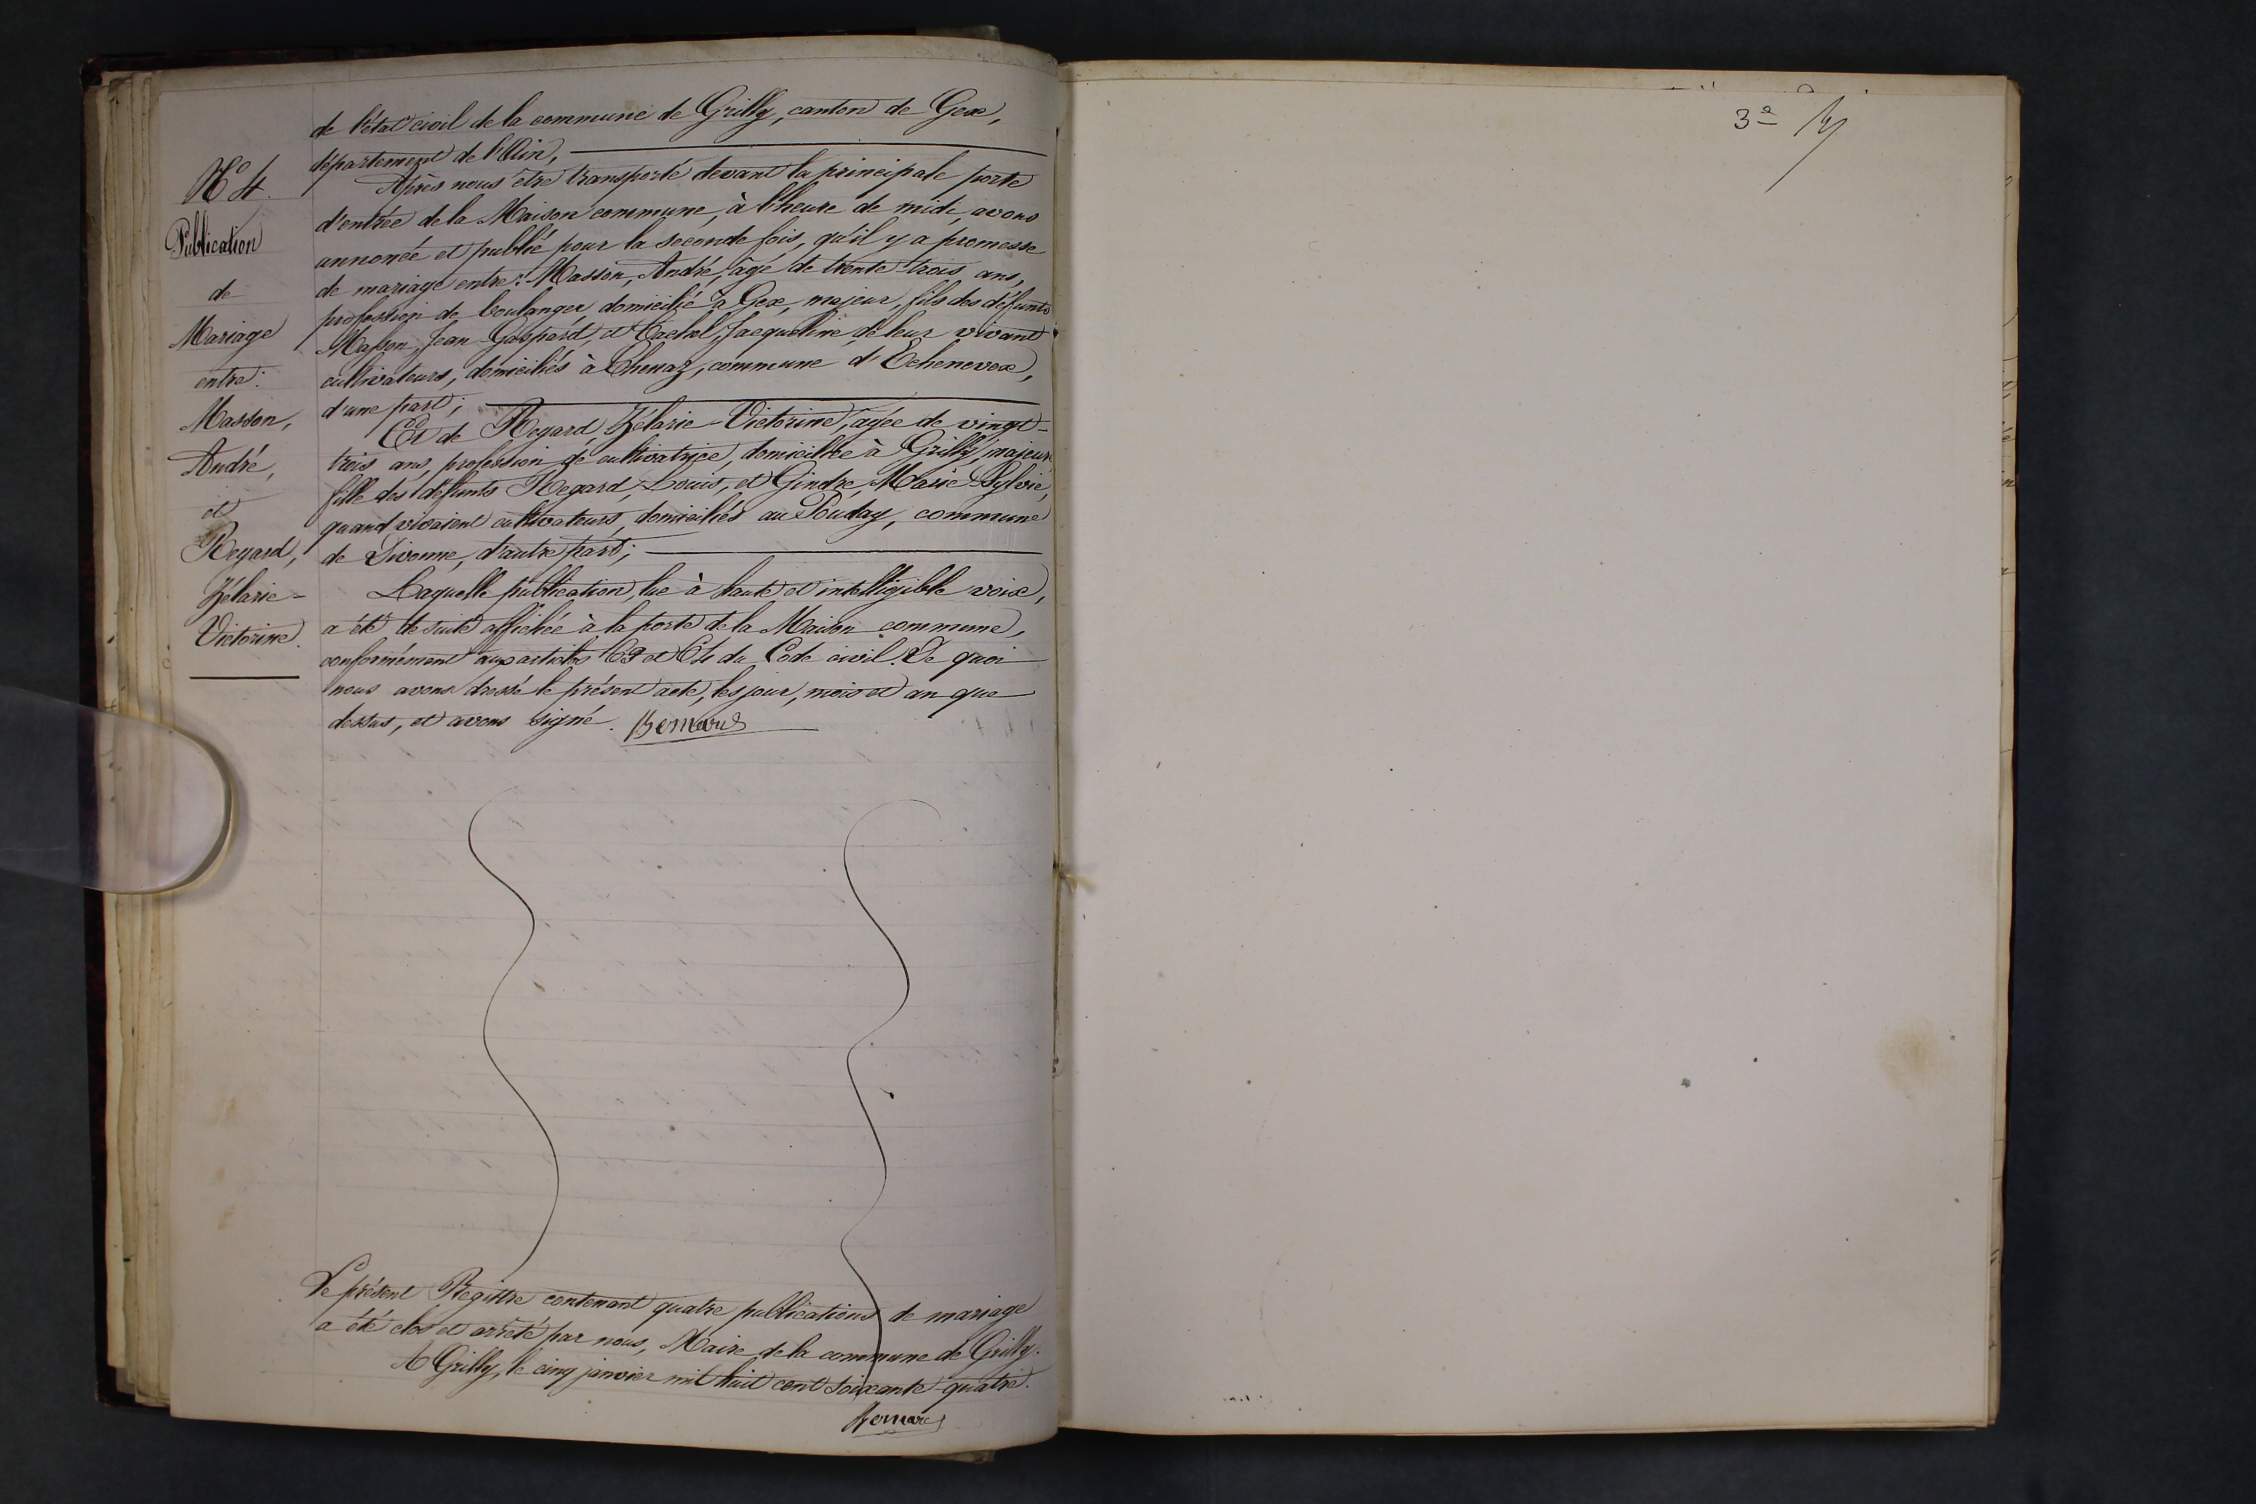 de l'état civil de la commune de Grilly, canton de Gex,
département de l'Ain,
Après nous être transporté devant la principale porte
d'entrée de la Maison commune, à l'heure de midi, avons
annoncé et publié pour la seconde fois, qu'il y a promesse
de mariage entre: Masson, André, âgé de trente trois ans,
profession de boulanger, domicilié à Gex, majeur, fils des défunts
Masson, Jean-Gaspard, et Jacqueline, de leur vivant
cultivateurs, domiciliés à Chenaz, commune d'Echenevex,
d'une part;
Et de Regard, Zélarie-Victorine, âgée de vingt-
trois ans, profession de cultivatrice, domiciliée à Grilly, majeure
fille des défunts Regard, Louis, et Gindre, Marie-Sylvie,
quand vivaient cultivateurs, domiciliés au Pouday, commune
de Divonne, d'autre part;
Laquelle publication, lue à haute et intelligible voix,
a été de suite affichée à la porte de la Maison commune,
conformément aux articles 63 et 64 du Code civil. De quoi
nous avons dressé le présent acte, les jour, mois et an que
dessus, et avons signé.
N° 4.
Publication
de
Mariage
entre:
Masson,
André,
et
Regard,
Zélarie-
Victorine.
Le présent Registre contenant quatre publications de mariage
a été clos et arrêté par nous, Maire de la commune de Grilly.
A Grilly, le cinq janvier mil huit cent soixante-quatre.
3e